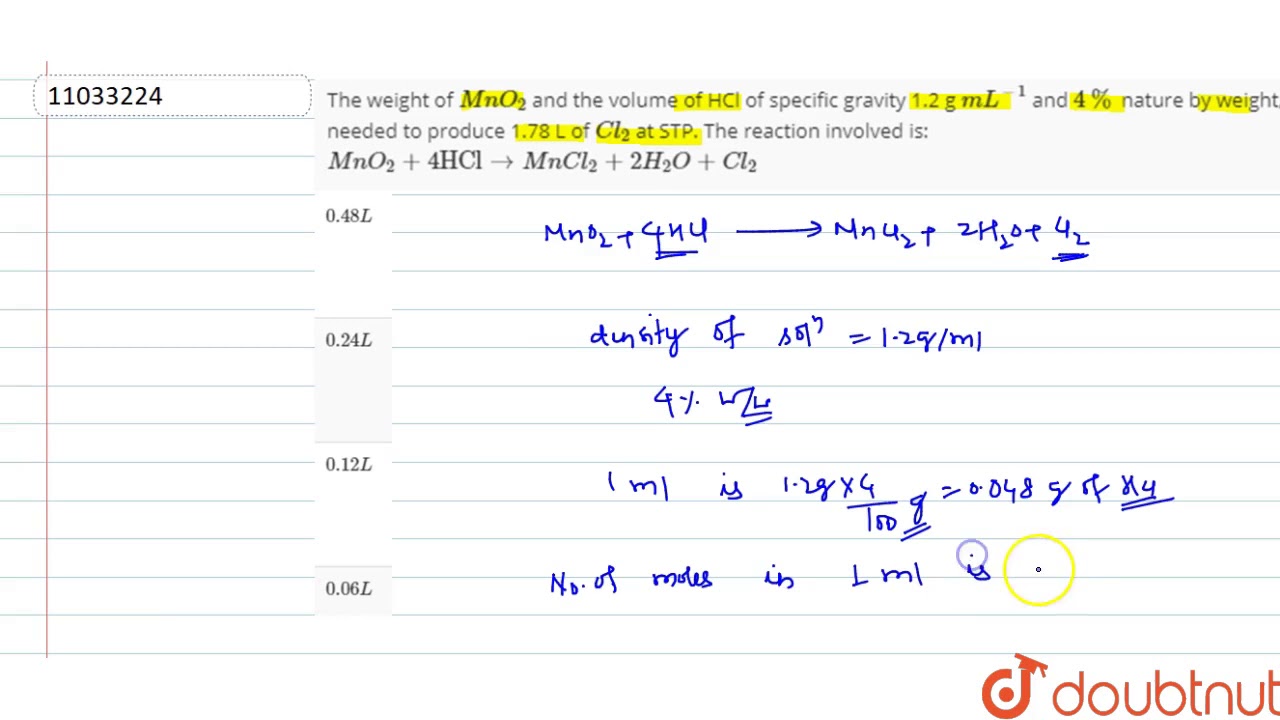 11033224
The weight of MnO₂ and the volume of HCl of specific gravity 1.2 g mL⁻¹ and 4% nature by weight,
needed to produce 1.78 L of Cl₂ at STP. The reaction involved is:
MnO₂ + 4HCl → MnCl₂ + 2H₂O + Cl₂
0.48L
MnO₂ + 4HCl ⟶ MnCl₂ + 2H₂O + Cl₂
0.24L
density of solⁿ = 1.2g/ml
4% w/w
0.12L
1 ml is 1.2g×4/100 g = 0.048 g of HCl
0.06L
No. of moles in 1 ml is
doubtnut